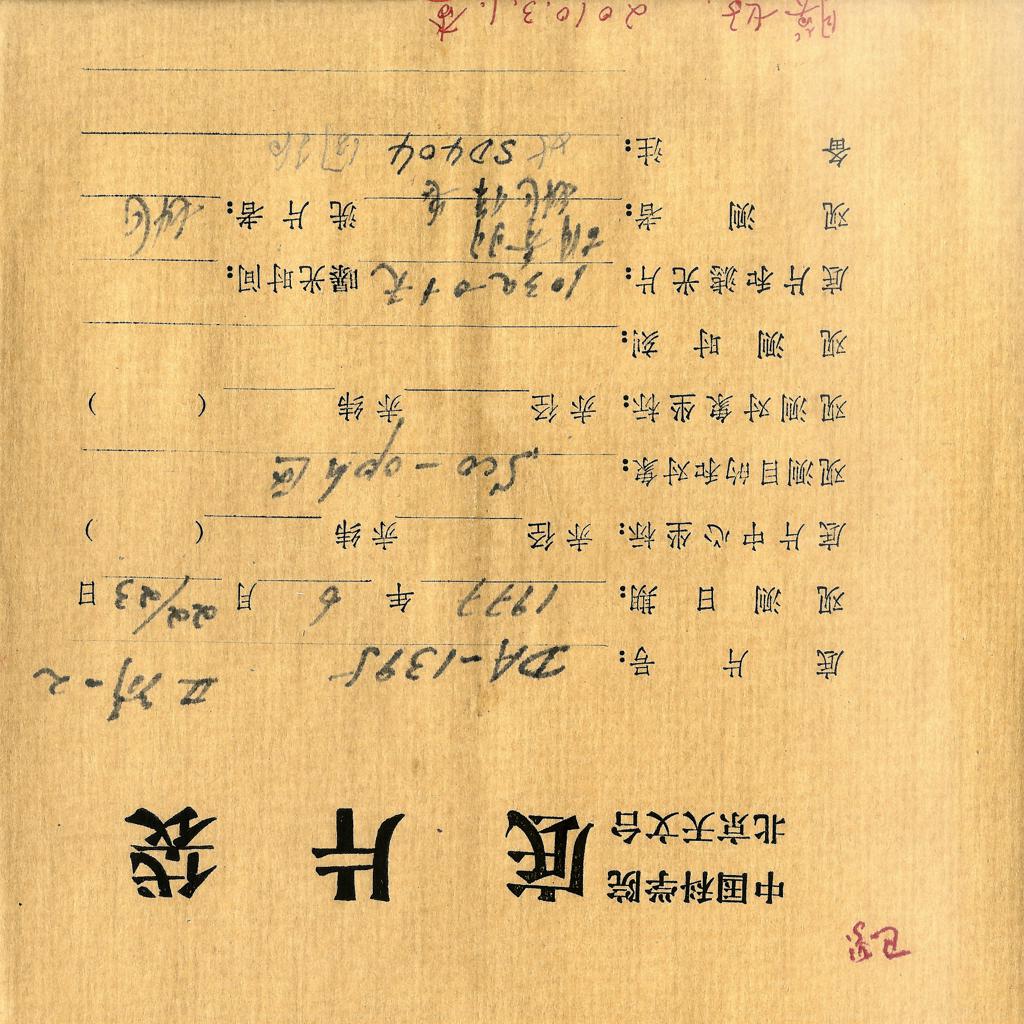 已影
中国科学院
北京天文台
底片袋
底片号: DA-1395 工 前-2
观测日期: 1977年6月22/23日
底片中心坐标: 赤径 赤纬 ( )
观测目的和对象: Sco-oph 区
观测对象坐标: 赤径 赤纬 ( )
观测时刻:
底片和滤光片: 103a-O+无 曝光时间:
观测者: 洗片者:
备注: SD404
2010.3.1.